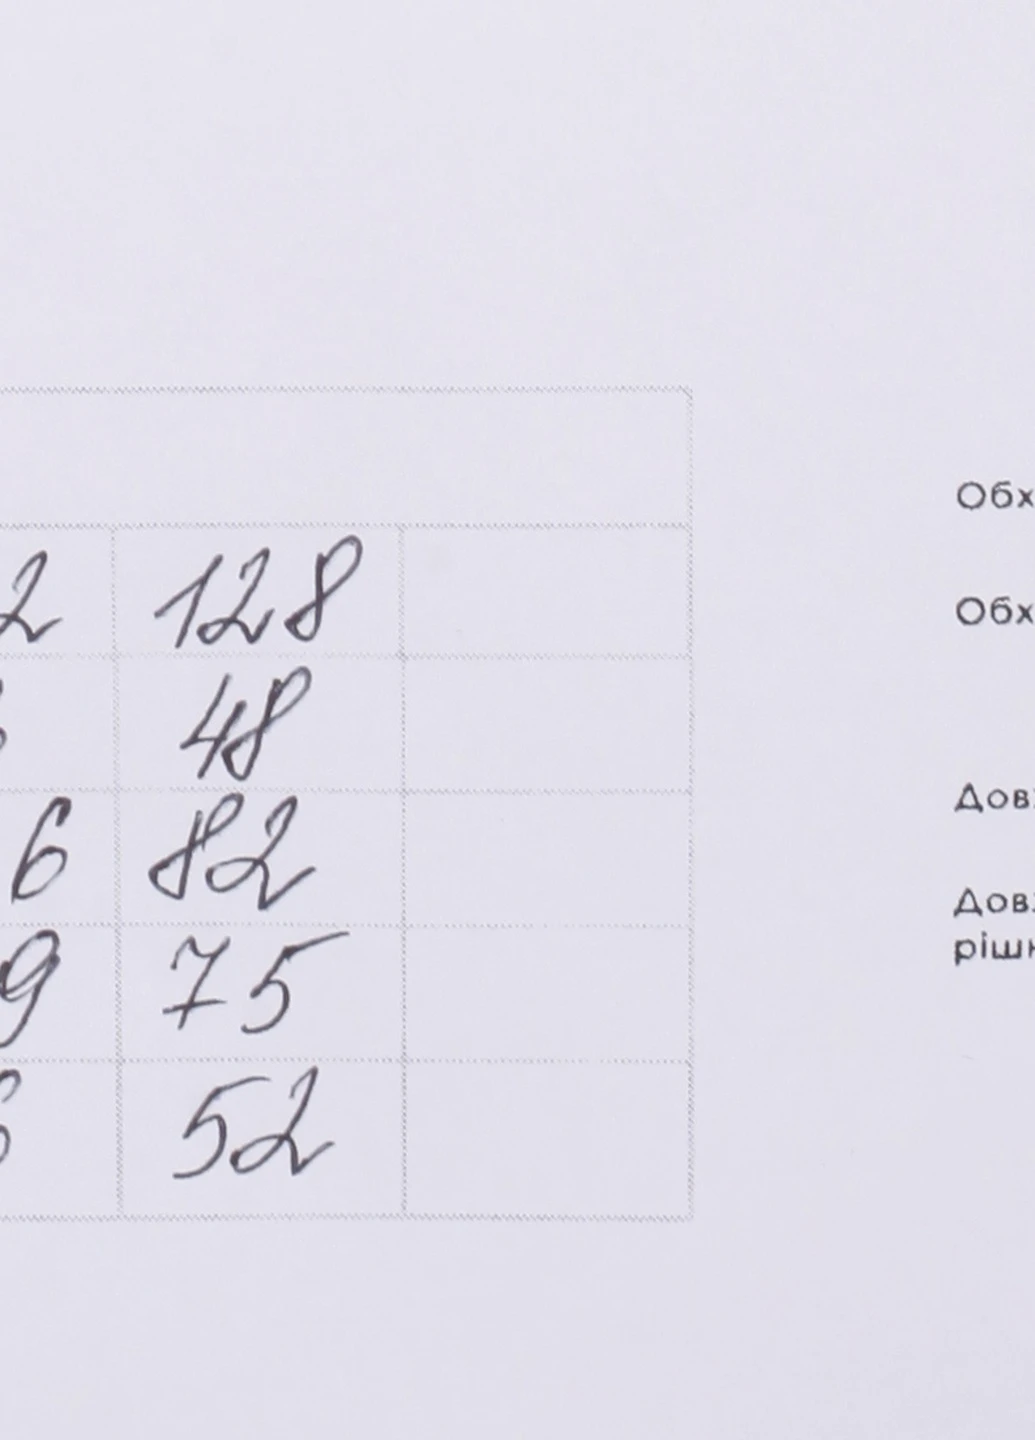 Обх
2 128
Обх
48
Дов
6 82
Дов
9 75
рішн
52